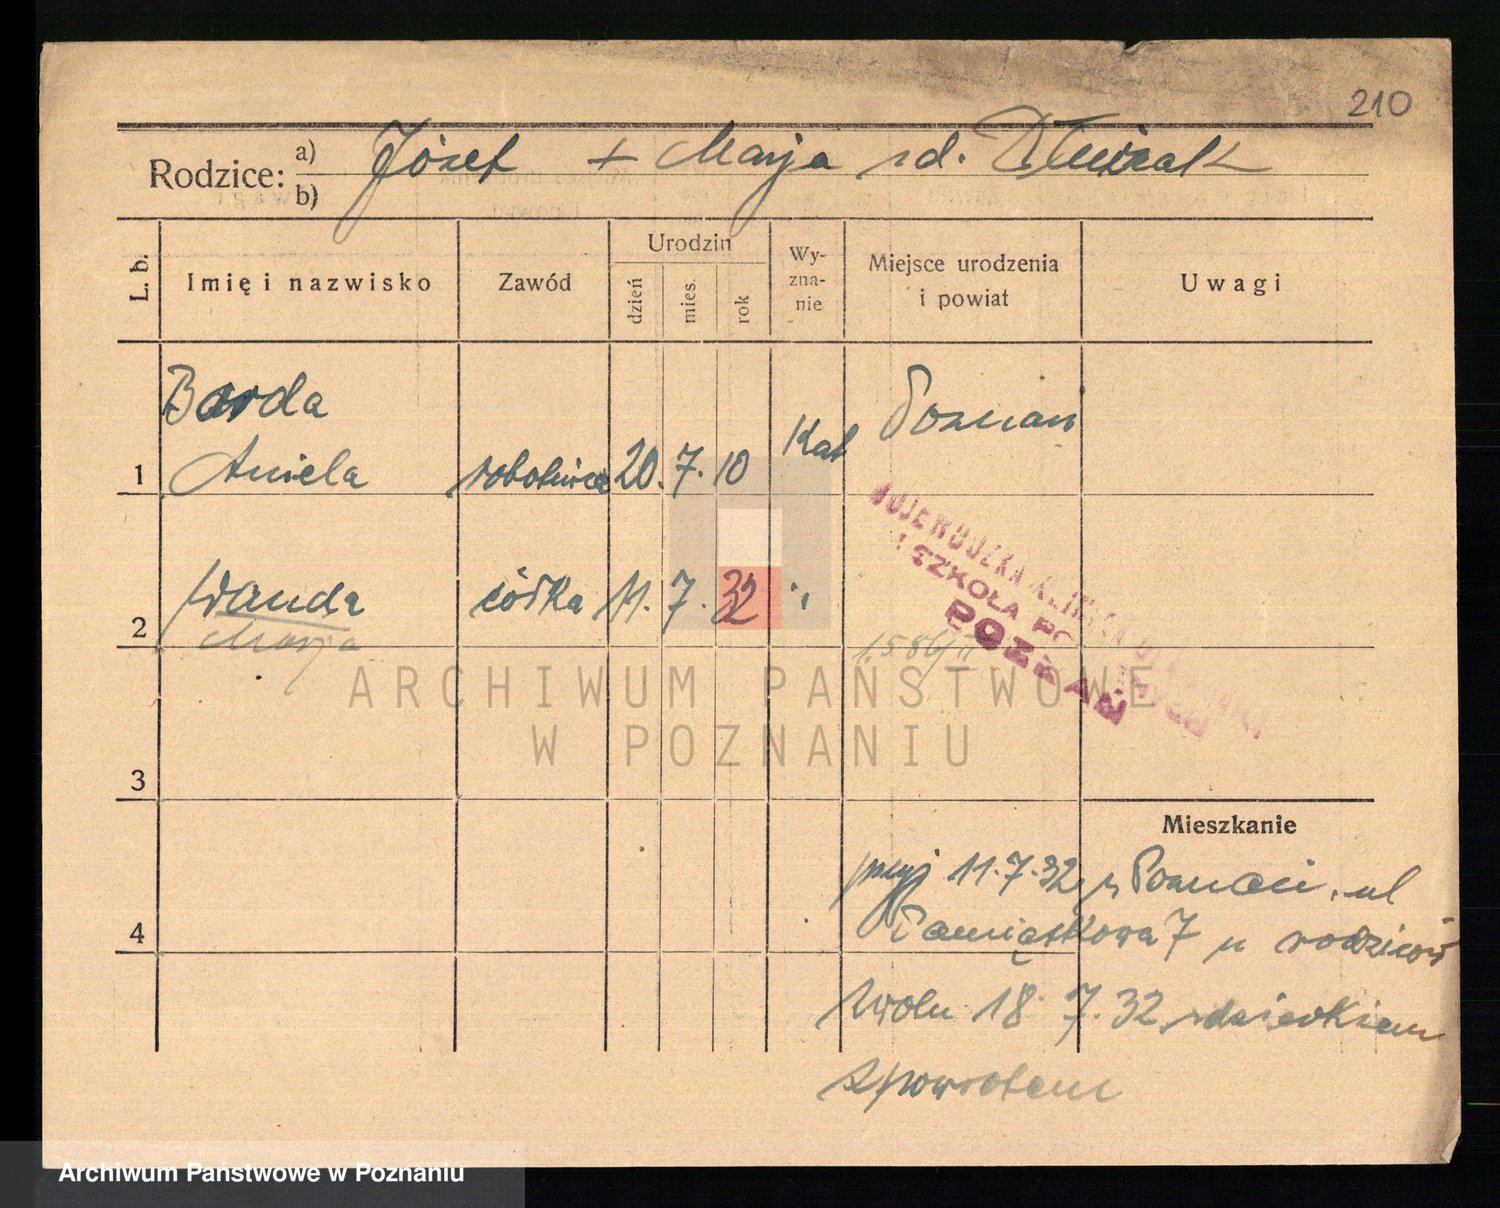 210
Rodzice: a) Józef + Marja rd. Dłużak
b)
L. b. Imię i nazwisko Zawód Urodzin dzień mies. rok Wyznanie Miejsce urodzenia i powiat Uwagi
Barda
1 Aniela robotnica 20. 7. 10 Kat Poznań
2 Wanda córka 11. 7. 32 "
Marja
1586/II
WOJEWÓDZKA KLINIKA
I SZKOŁA
POZNAŃ
3
Mieszkanie
przyj 11.7.32 z Poznania, ul
4 Pamiątkowa 7 u rodziców
Zwoln 18. 7. 32 z dzieckiem
zpowrotem
ARCHIWUM PAŃSTWOWE
W POZNANIU
Archiwum Państwowe w Poznaniu